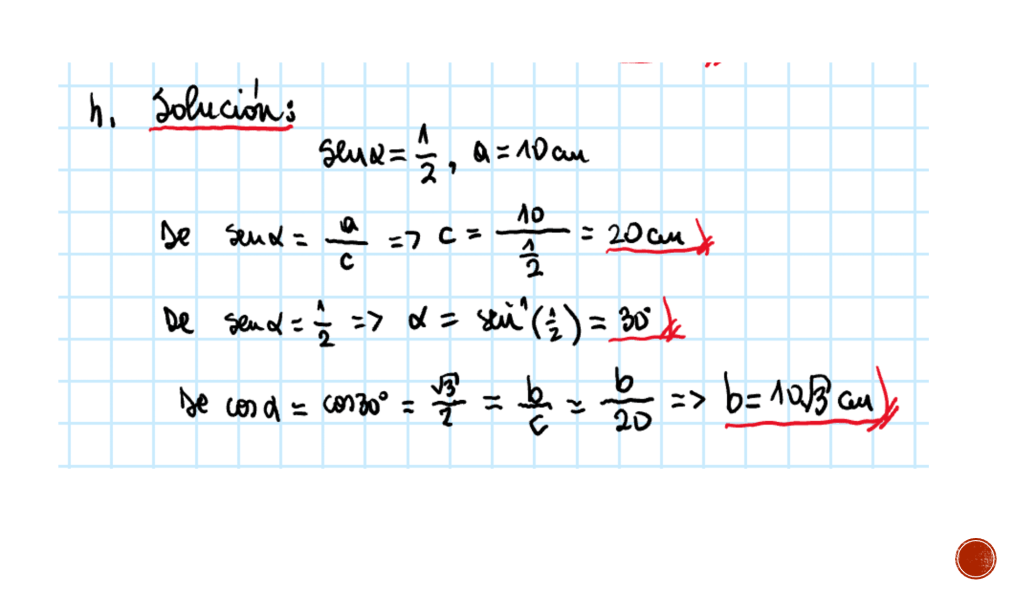 h. Solución:
senα = 1/2, a = 10 cm
De senα = a/c => c = 10/(1/2) = 20 cm
De senα = 1/2 => α = sen⁻¹(1/2) = 30°
De cosα = cos30° = √3/2 = b/c = b/20 => b = 10√3 cm